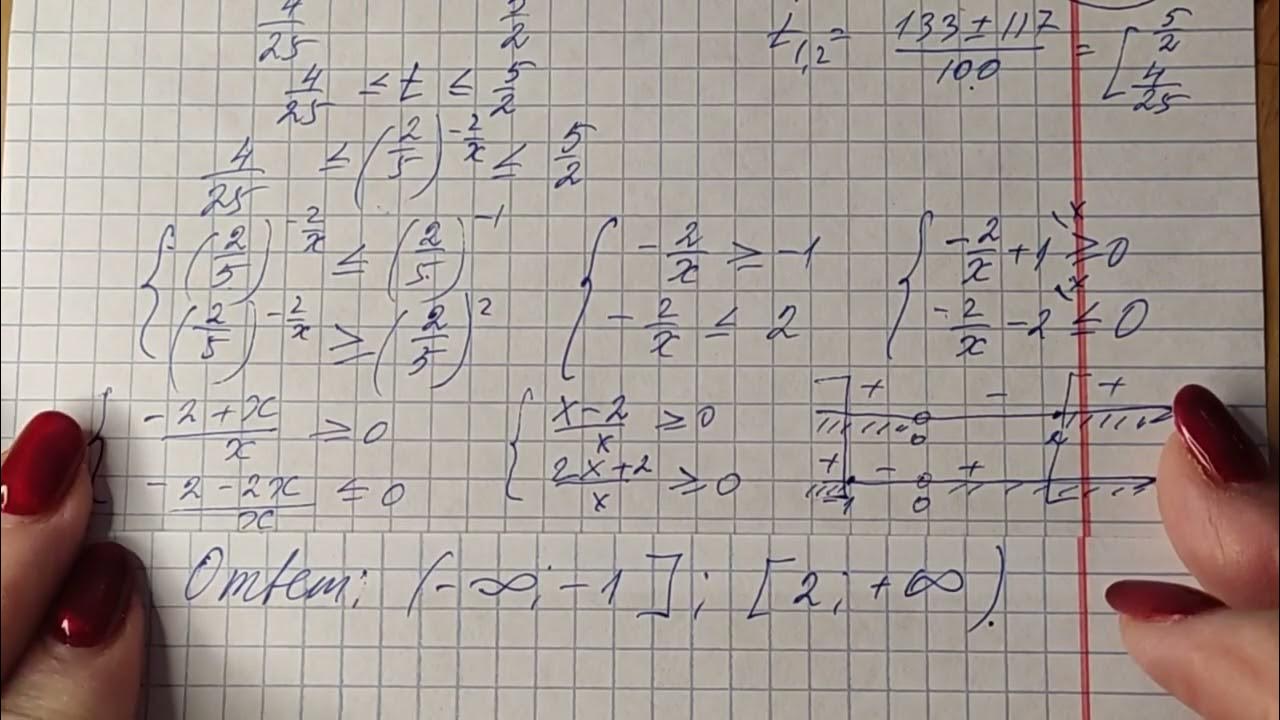 4/25 5/2
t₁,₂ = (133 ± 117)/100 = [ 5/2 4/25
4/25 ≤ t ≤ 5/2
4/25 ≤ (2/5)^(-2/x) ≤ 5/2
{ (2/5)^(-2/x) ≤ (2/5)^(-1) { -2/x ≥ -1 { -2/x + 1 ≥ 0
(2/5)^(-2/x) ≥ (2/5)^2 -2/x ≤ 2 -2/x - 2 ≤ 0
{ (-2+x)/x ≥ 0 { (x-2)/x ≥ 0 + - +
0 2
(-2-2x)/x ≤ 0 (2x+2)/x ≥ 0 + - +
-1 0
Ответ: (-∞; -1]; [2; +∞).